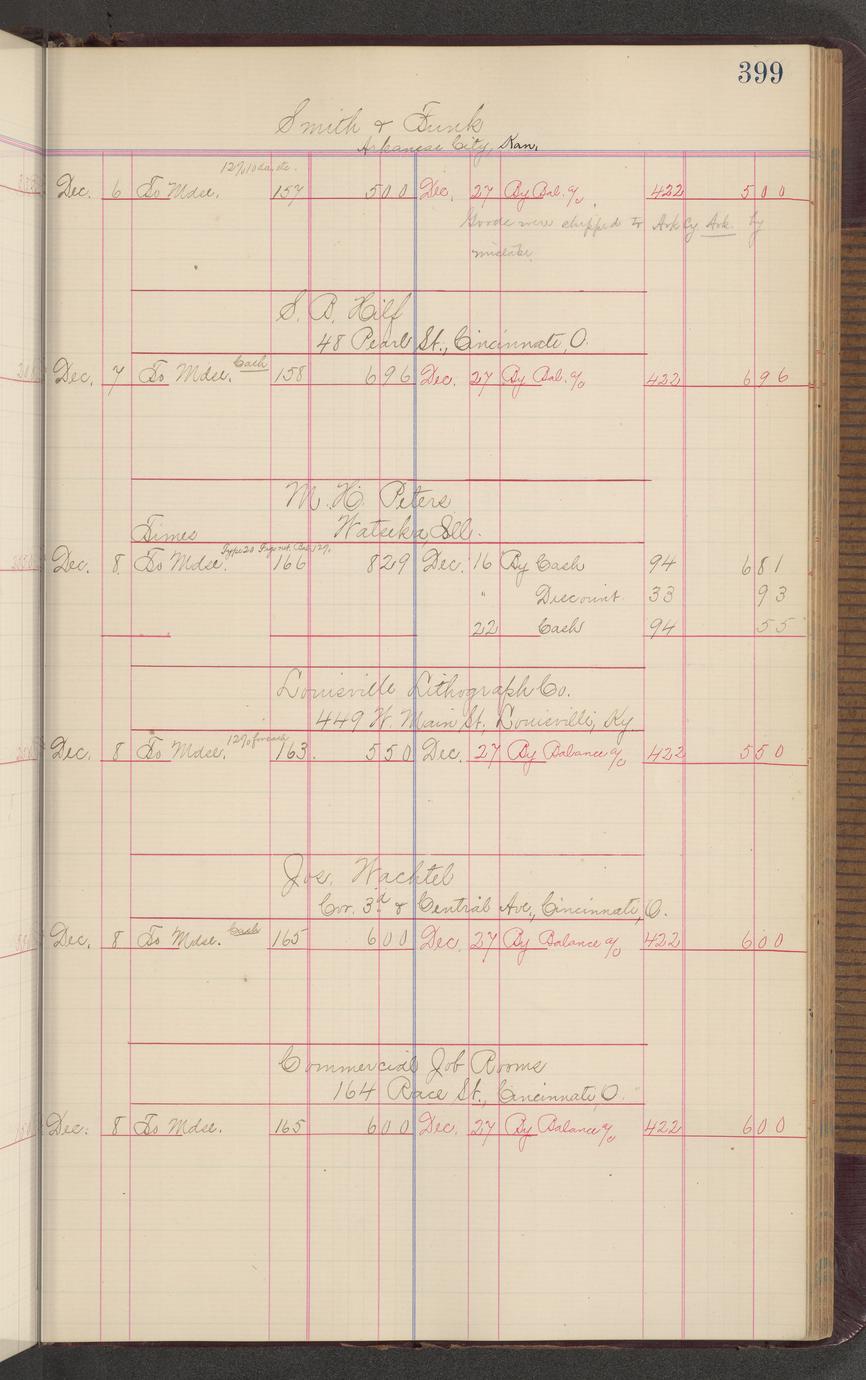 399
Smith & Funk
Arkansas City, Kan.
Dec. 6 To Mdse. 157 500 Dec. 27 By Bal. a/c 422 500
Goods were shipped to Ark Cy Ark. by
mistake.
S. B. Hilf
48 Pearl St., Cincinnati, O.
Dec. 7 To Mdse. Cash 158 696 Dec. 27 By Bal. a/c 422 696
M. H. Peters
Times Watseka, Ill.
Dec. 8 To Mdse. 166 829 Dec. 16 By Cash 94 681
" Discount 33 93
22 Cash 94 55
Louisville Lithograph Co.
449 W. Main St., Louisville, Ky.
Dec. 8 To Mdse. 163 550 Dec. 27 By Balance a/c 422 550
Jos. Wachtel
Cor. 3d & Central Ave., Cincinnati, O.
Dec. 8 To Mdse. Cash 165 600 Dec. 27 By Balance a/c 422 600
Commercial Job Rooms
164 Race St., Cincinnati, O.
Dec. 8 To Mdse. 165 600 Dec. 27 By Balance a/c 422 600